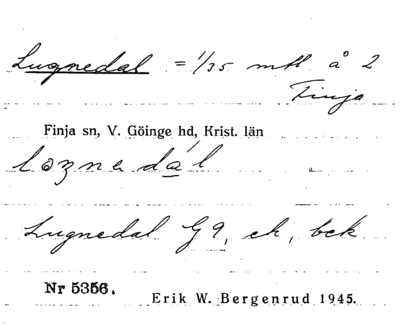 Lugnedal = 1/35 mtl å 2
Finja
Finja sn, V. Göinge hd, Krist. län
Lugnedal G9, ek, bck
Nr 5356. Erik W. Bergenrud 1945.